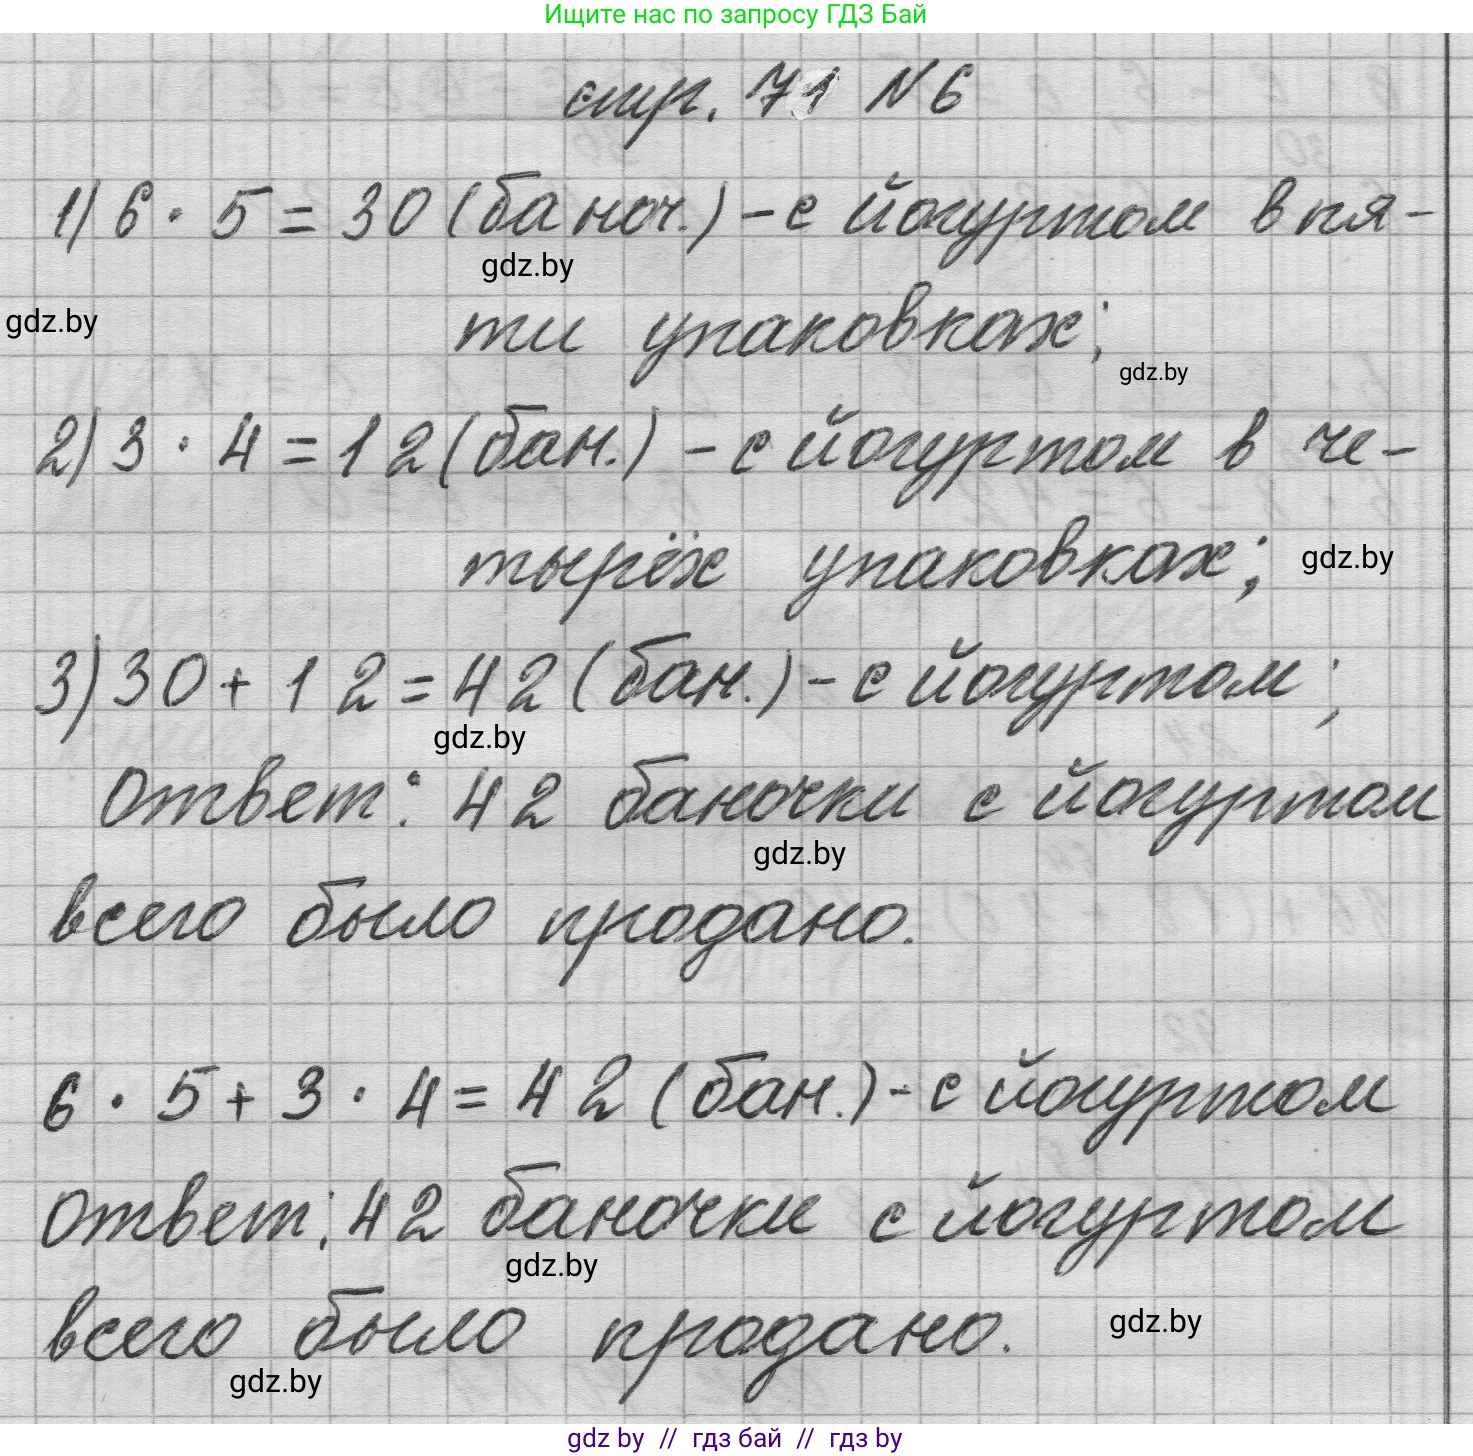 Ищите нас по запросу ГДЗ Бай
стр. 71 №6
1) 6 · 5 = 30 (баноч.) – с йогуртом в пя-
gdz.by
gdz.by
ти упаковках;
gdz.by
2) 3 · 4 = 12 (бан.) – с йогуртом в че-
тырёх упаковках;
gdz.by
3) 30 + 12 = 42 (бан.) – с йогуртом;
gdz.by
Ответ: 42 баночки с йогуртом
gdz.by
всего было продано.
6 · 5 + 3 · 4 = 42 (бан.) – с йогуртом
Ответ: 42 баночки с йогуртом
gdz.by
всего было продано.
gdz.by
gdz.by
gdz by // гдз бай // гдз by